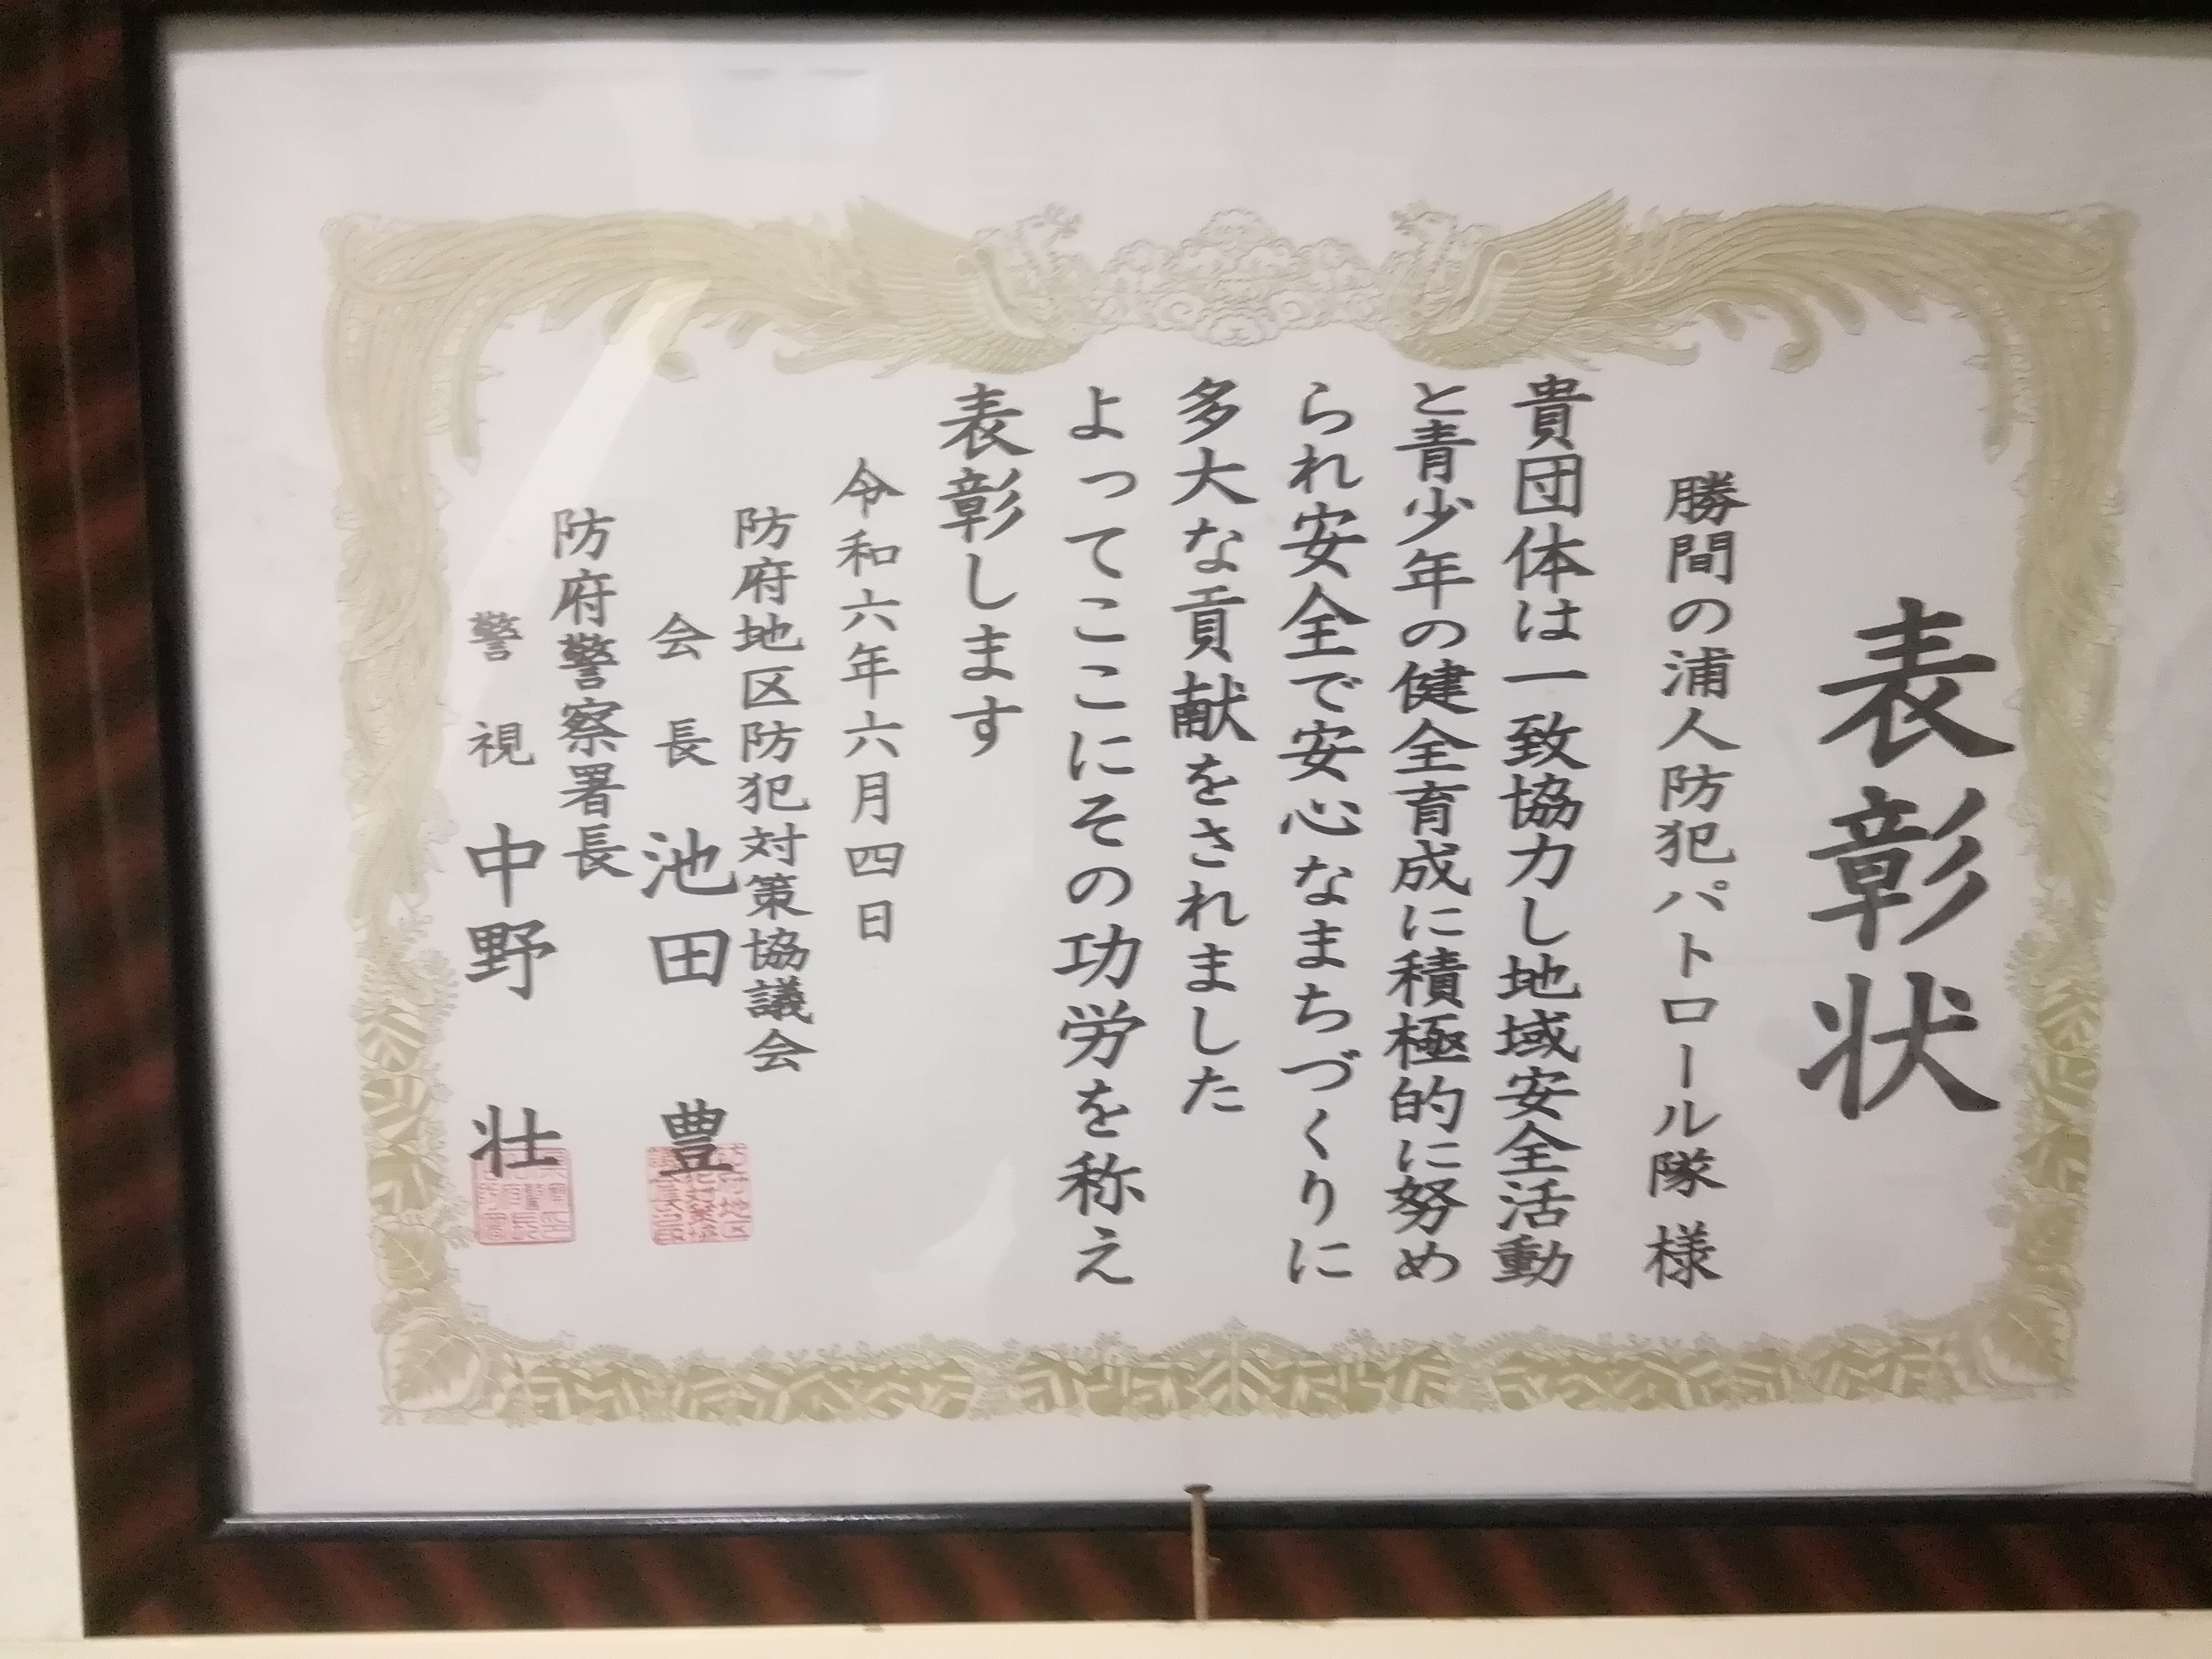 表彰状
勝間の浦人防犯パトロール隊 様
貴団体は一致協力し地域安全活動
と青少年の健全育成に積極的に努め
られ安全で安心なまちづくりに
多大な貢献をされました
よってここにその功労を称え
表彰します
令和六年六月四日
防府地区防犯対策協議会
会長 池田 豊
防府警察署長
警視 中野 壮